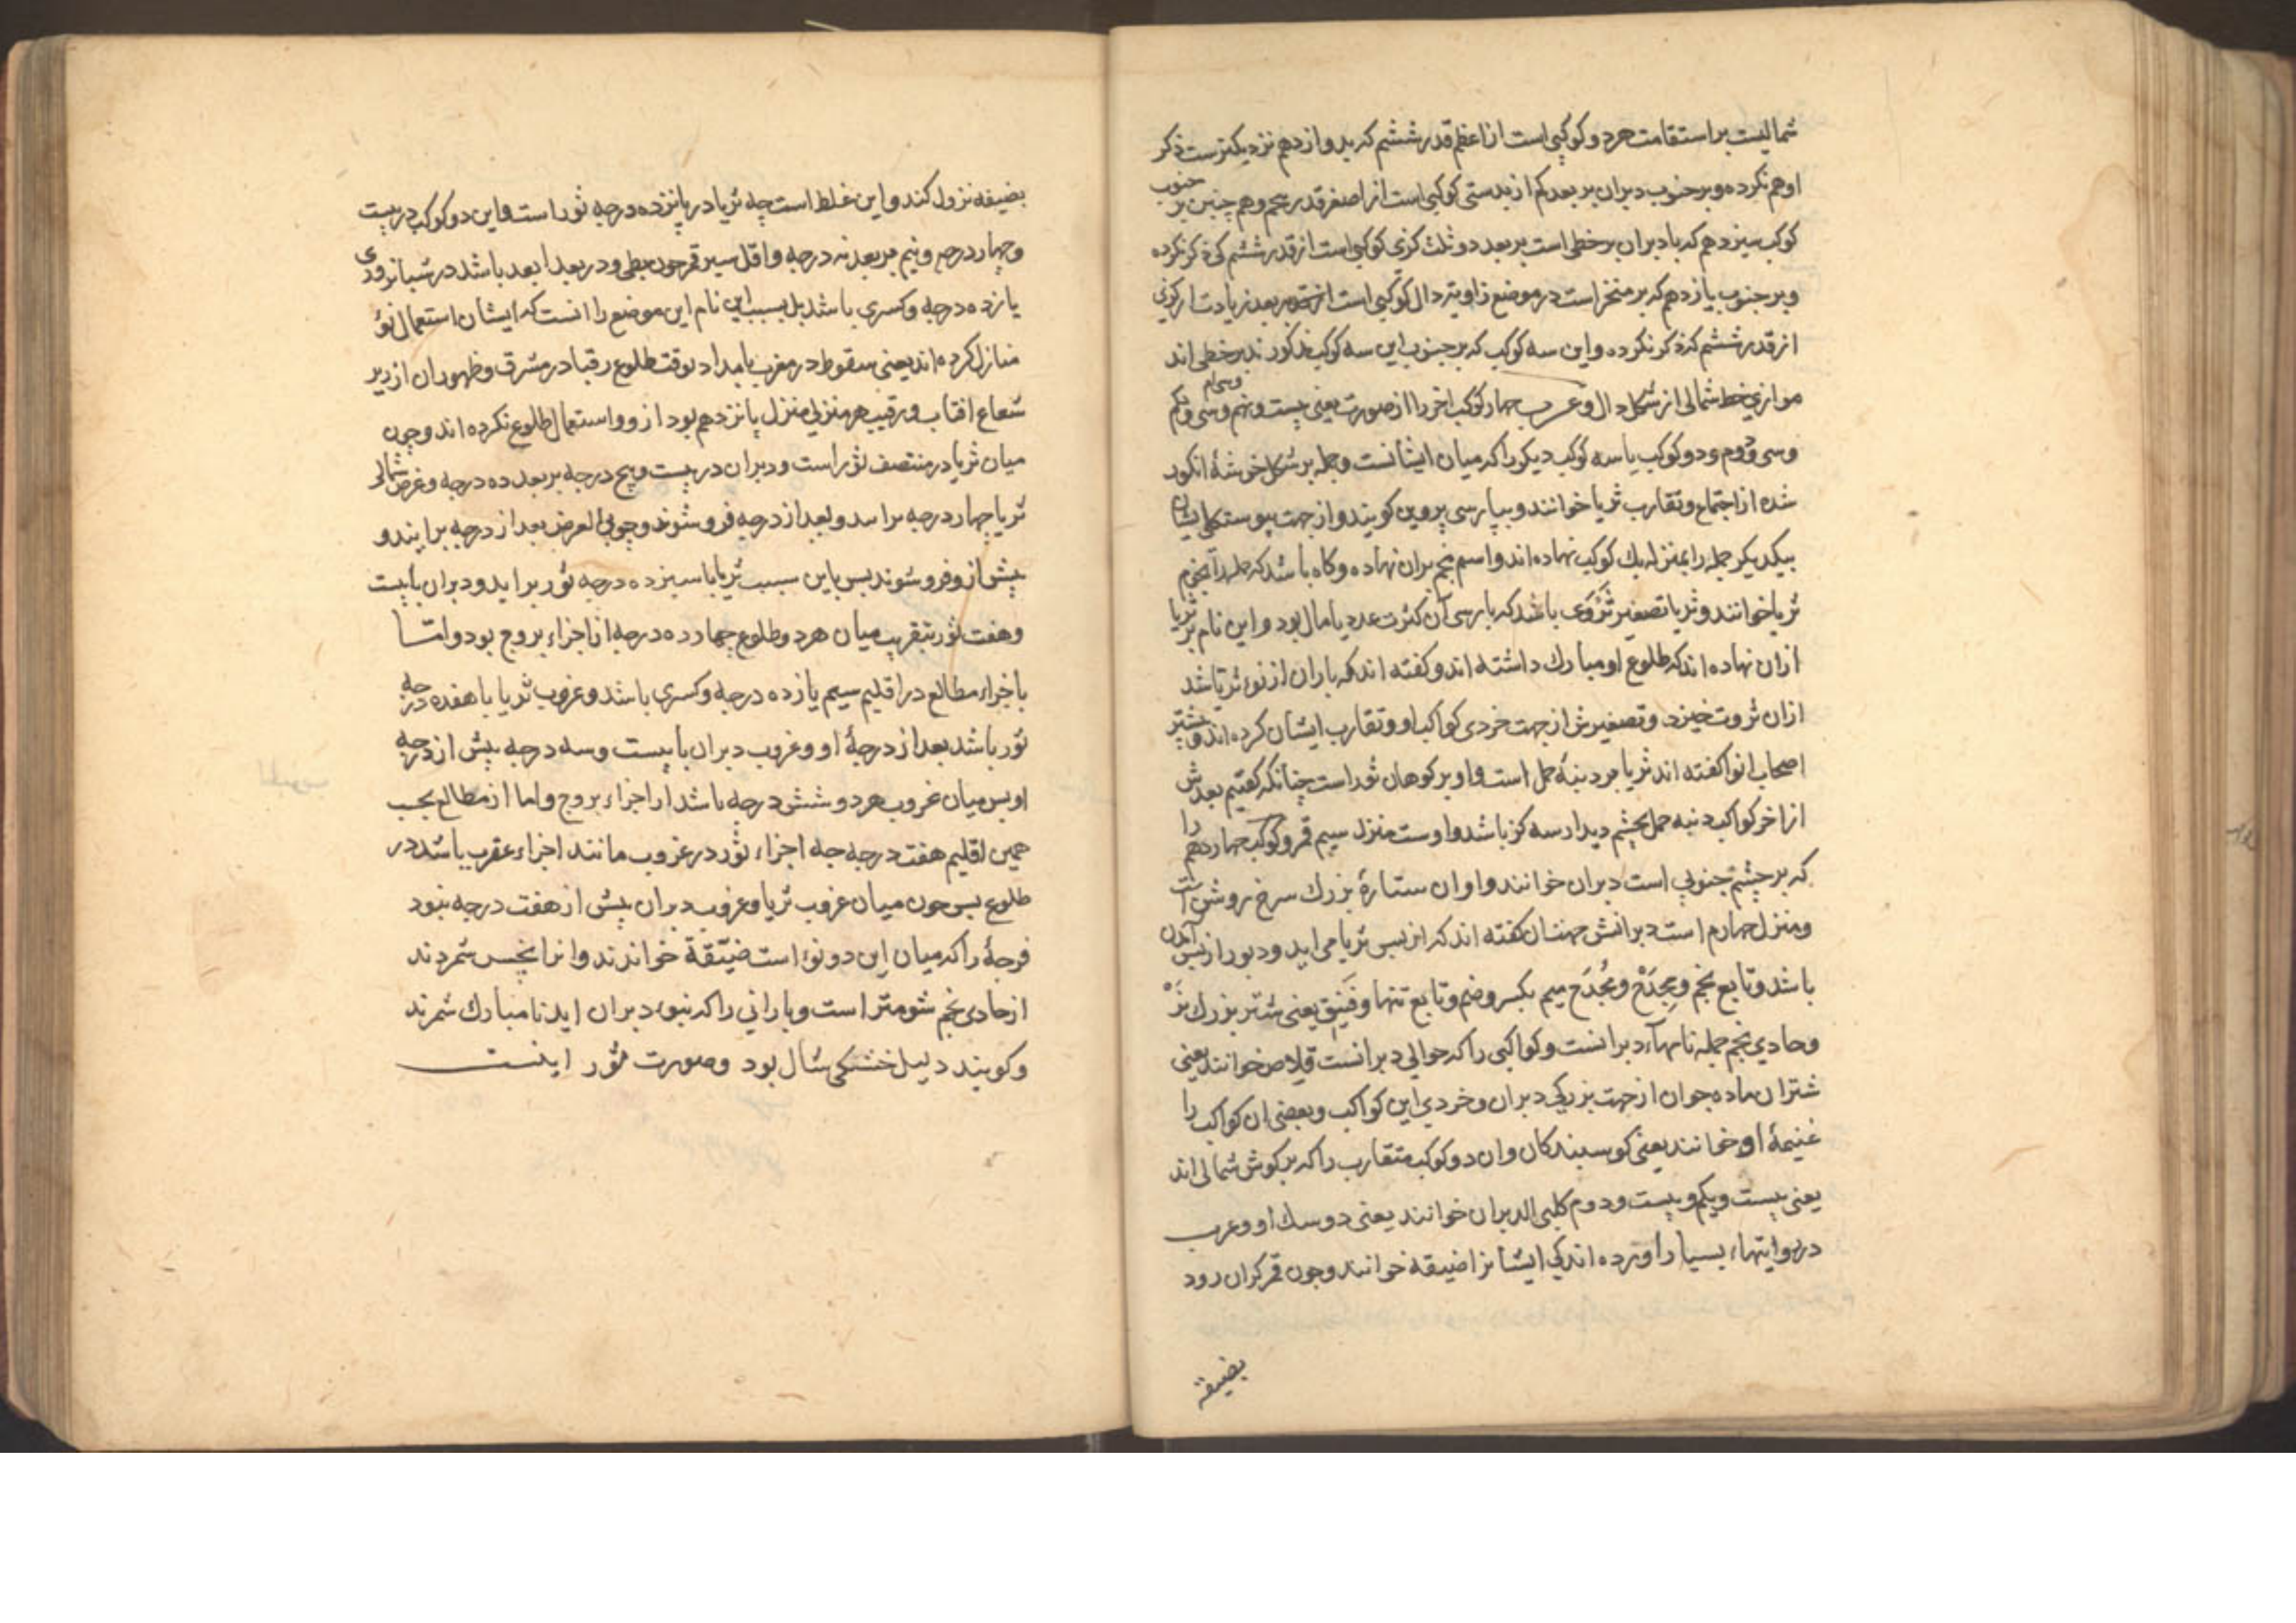 شمالیست بر استقامت هر دو کوکبی است از اعظم قدر ششم که بدوازدهم نزدیکترست ذکر
او هم نکرده و بر جنوب دبران بر بعد کم از بدستی کوکبی است از اصغر قدر پنجم و هم چنین بر جنوب
کوکب سیزدهم که با دبران بر خطی است بر بعد دو ثلث کزی کوکبی است از قدر ششم کی ذکر نکرده
و بر جنوب یازدهم که بر منخر است در موضع زاویه دال کوکبی است بر بعد زیادت از کزی
از قدر ششم که ذکر نکرده و این سه کوکب که بر جنوب این سه کوکب مذکورند بر خطی اند
موازی خط شمالی از شکل دال و عرب چهار کوکب اخر را از صورت یعنی بیست و نهم و سی ام و سی و یکم
و سی و دوم و دو کوکب یا سه کوکب دیکر را که میان ایشانست و جمله بر شکل خوشهٔ انکور
شده از اجتماع و تقارب ثریا خوانند و بپارسی پروین کویند و از جهت پیوستکی ایشان
بیکدیکر جمله را بمنزله یک کوکب نهاده اند و اسم نجم بران نهاده و کاه باشد که جمله را نجوم
ثریا خوانند و ثریا تصغیر ثَرْوَی باشد که بارسی آن کثرت عدد یا مال بود و این نام بر ثریا
ازان نهاده اند که طلوع او مبارک داشته اند و کفته اند که باران از نوء ثریا باشد
ازان ثروت خیزد و تصغیرش از جهت خردی کواکب او و تقارب ایشان کرده اند و بیشتر
اصحاب انوا کفته اند ثریا بر دنبهٔ حمل است و او بر کوهان ثور است چنانکه کفتیم بعدش
از اخر کواکب دنبه حمل بچشم دیدار سه کز باشد و اوست منزل سیم قمر و کوکب چهاردهم را
که بر چشم جنوبی است دبران خوانند و او ان ستارهٔ بزرک سرخ روشن است
و منزل چهارم است دبرانش کفته اند که از بس ثریا می اید و دبور از بس آمدن
باشد و تابع نجم و مِجْدَح و مُجْدَح میم بکسر و ضم و تابع تنها و فَنِیق یعنی شتر بزرک نر
و حادی نجم جمله نامهاء دبرانست و کواکبی را که حوالی دبرانست قلاص خوانند یعنی
شتران ماده جوان از جهت بزرکی دبران و خردی این کواکب و بعضی ان کواکب را
غنیمهٔ او خوانند یعنی کوسبندکان و ان دو کوکب متقارب را که بر کوش شمالی اند
یعنی بیست و یکم و بیست و دوم کلبی الدبران خوانند یعنی دو سک او و عرب
در روایتهاء بسیار اورده اند کی ایشانرا ضیقه خوانند و جون قمر کران رود
بضیقه
بضیقه نزول کند و این غلط است چه ثریا در پانزده درجه ثور است و این دو کوکب در بیست
و چهار درجه و نیم بر بعد نه درجه و اقل سیر قمر جون بطی و در بعد ابعد باشد در شبانروزی
یازده درجه و کسری باشد بل بسبب این نام این موضع را انست که ایشان استعمال نوء
منازل کرده اند یعنی سقوط در مغرب بامداد بوقت طلوع رقبا در مشرق و ظهور ان از زیر
شعاع افتاب و رقیب هر منزلی منزل پانزدهم بود ازو و استعمال طلوع نکرده اند و چون
میان ثریا در منتصف ثور است و دبران در بیست و پنج درجه بر بعد ده درجه و عرض شمالی
ثریا چهار درجه و بعد از درجه فرو شوند و جنوبی العرض بعد از درجه برایند و
پیش ازو فرو شوند بس باین سبب ثریا با سیزده درجه ثور براید و دبران با بیست
و هفت ثور بتقریب میان هر دو طلوع چهارده درجه از اجزاء بروج بود و امّا
باجزاء مطالع در اقلیم سیم یازده درجه و کسری باشد و غروب ثریا با هفده درجه
ثور باشد بعد از درجهٔ او و غروب دبران با بیست و سه درجه پیش از درجه
او بس میان غروب هر دو شش درجه باشد از اجزاء بروج و اما از مطالع بحسب
همین اقلیم هفت درجه چه اجزاء ثور در غروب مانند اجزاء عقرب باشد در
طلوع بس جون میان غروب ثریا و غروب دبران بیش از هفت درجه نبود
فرجهٔ را که میان این دو نوء است ضَیّقَة خواندند و انرا نحس شمردند
از حادی نجم شومتر است و بارانی را که بنوء دبران اید نامبارک شمرند
و کویند دلیل خشکی سال بود و صورت ثور اینست